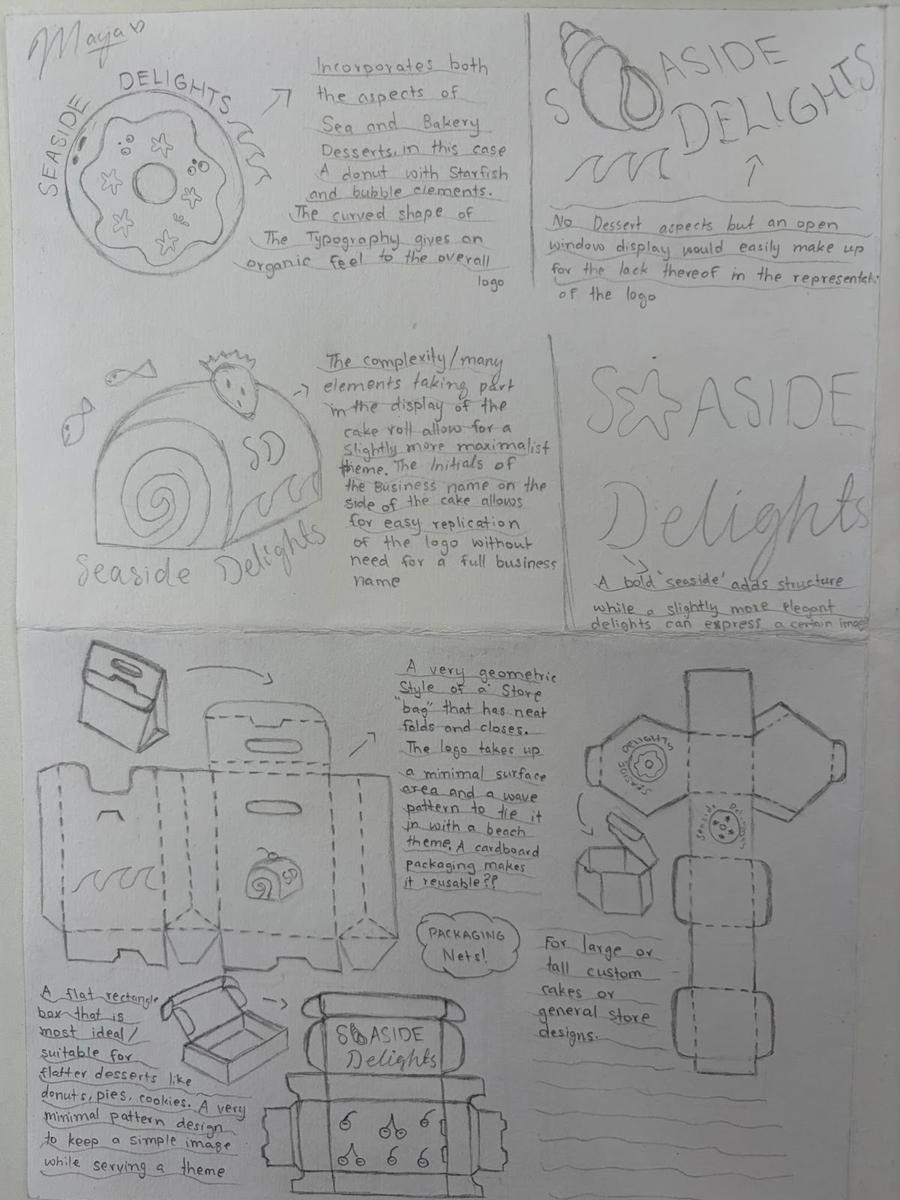 Maya
SEASIDE DELIGHTS
Incorporates both
the aspects of
Sea and Bakery
Desserts, in this case
A donut with Starfish
and bubble elements.
The curved shape of
The Typography gives an
organic feel to the overall
logo
S ASIDE
DELIGHTS
No Dessert aspects but an open
window display would easily make up
for the lack thereof in the representati
of the logo
SD
Seaside Delights
The complexity/many
elements taking part
in the display of the
cake roll allow for a
slightly more maximalist
theme. The Initials of
the Business name on the
side of the cake allows
for easy replication
of the logo without
need for a full business
name
S ASIDE
Delights
A bold 'seaside' adds structure
while a slightly more elegant
delights can express a certain image
A very geometric
Style of a Store
"bag" that has neat
folds and closes.
The logo takes up
a minimal surface
area and a wave
pattern to tie it
in with a beach
theme. A cardboard
packaging makes
it reusable??
SD
SEASIDE DELIGHTS
Seaside Delights
PACKAGING
Nets!
For large or
tall custom
cakes or
general store
designs.
A flat rectangle
box that is
most ideal/
suitable for
flatter desserts like
donuts, pies, cookies. A very
minimal pattern design
to keep a simple image
while serving a theme
S ASIDE
Delights